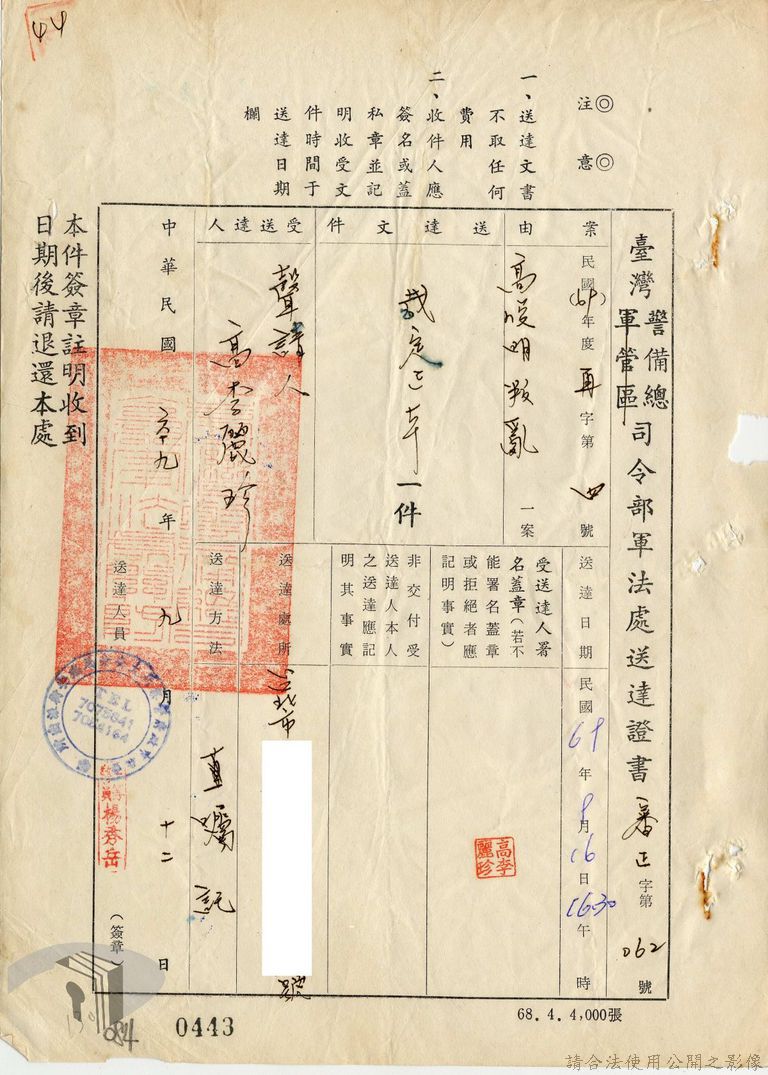 44
◎注意◎
一、送達文書
不取任何
費用
二、收件人應
簽名或蓋
私章並記
明收受文
件時間于
送達日期
欄
臺灣警備總軍管區司令部軍法處送達證書
審正字第062號
案由
民國(69)年度再字第四號
高俊明叛亂一案
送達文件
裁定正本一件
受送達人
聲請人
高李麗珍
送達日期
民國69年9月16日1630午時
受送達人署
名蓋章(若不
能署名蓋章
或拒絕者應
記明事實)
高李麗珍
非交付受
送達人本人
之送達應記
明其事實
送達處所
台北市
號
送達方法
直囑託
中華民國六十九年九月十二日
送達人員
(簽章)
TEL
7075841
楊秀岳
本件簽章註明收到
日期後請退還本處
084
0443
68.4.4,000張
請合法使用公開之影像